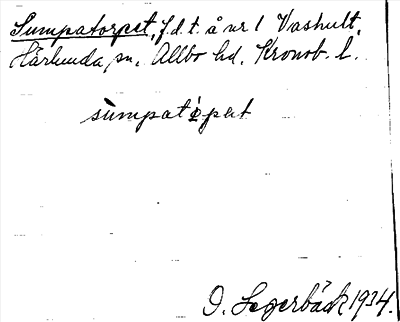 Sumpatorpet, f.d.t. å nr 1 Vashult,
Härlunda sn. Allbo hd. Kronob. l.
sùmpatòpət
O. Segerbäck 1934.